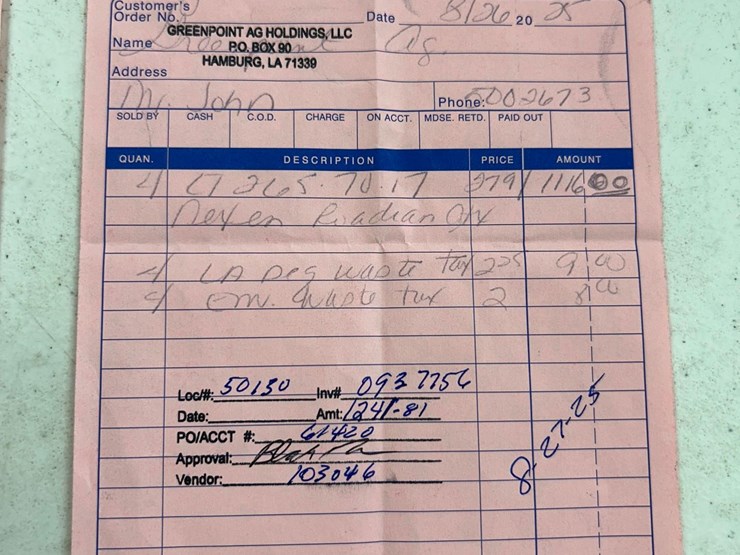 Customer's
Order No. Date 8/26 20 25
GREENPOINT AG HOLDINGS, LLC
Name P.O. BOX 90 Ag.
HAMBURG, LA 71339
Address
Mr. John Phone: 5002673
SOLD BY CASH C.O.D. CHARGE ON ACCT. MDSE. RETD. PAID OUT
QUAN. DESCRIPTION PRICE AMOUNT
4 LT 265.70.17 279 1116 00
Nexen Roadian
4 LA Deq Waste Tax 2 25 9 00
4 Waste Tax 2 8 00
Loc/#: 50130 Inv# 0937756
Date: Amt: 1241.81
PO/ACCT #: 61420
Approval:
Vendor: 103046
8-27-25